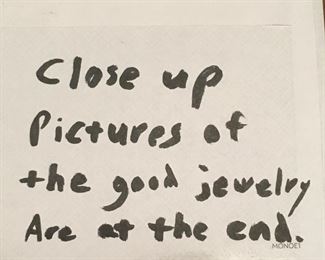 Close up
Pictures of
the good jewelry
Are at the end.
MONDE1